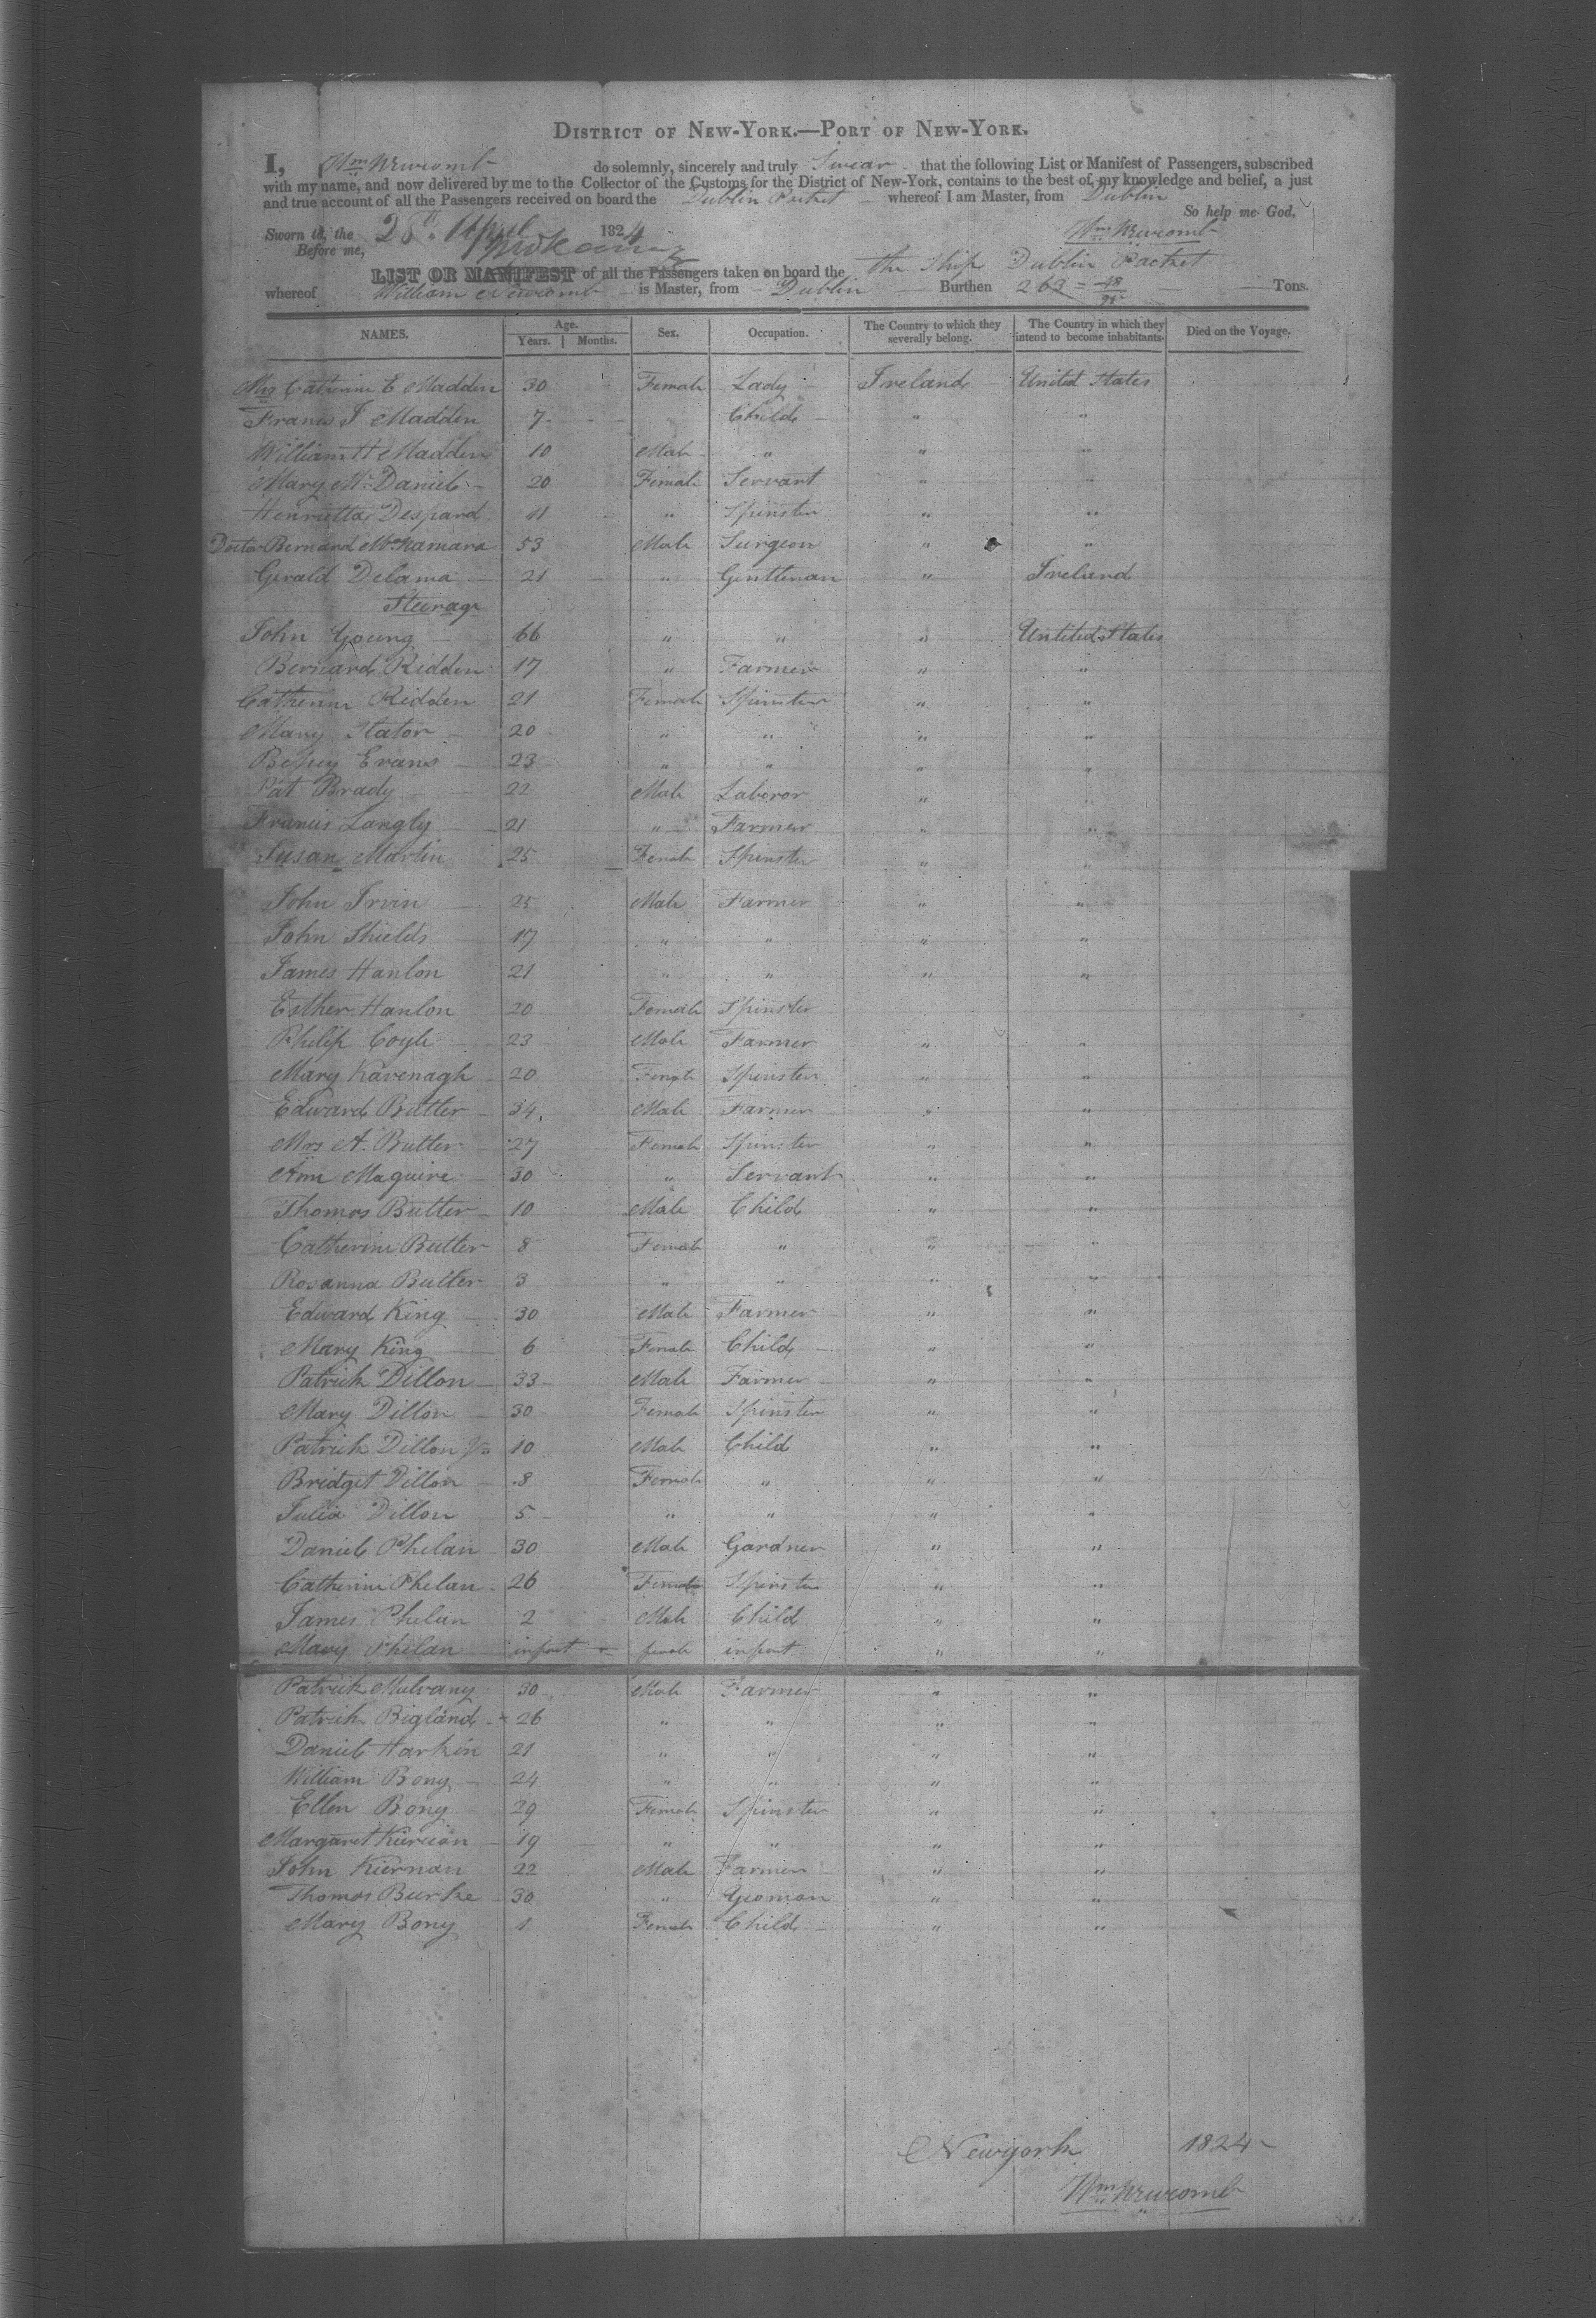 DISTRICT OF NEW-YORK.—PORT OF NEW-YORK.
I, Wm Newcomb do solemnly, sincerely and truly Swear that the following List or Manifest of Passengers, subscribed
with my name, and now delivered by me to the Collector of the Customs for the District of New-York, contains to the best of my knowledge and belief, a just
and true account of all the Passengers received on board the Dublin Packet whereof I am Master, from Dublin
So help me God.
Sworn to, the 28th April 1824 Wm Newcomb
Before me,
LIST OR MANIFEST of all the Passengers taken on board the the Ship Dublin Packet
whereof William Newcomb is Master, from Dublin Burthen 263 = 48/95 Tons.
NAMES. Age. Years. Months. Sex. Occupation. The Country to which they severally belong. The Country in which they intend to become inhabitants. Died on the Voyage.
Mrs Catherine E Madden 30 Female Lady Ireland United States
Frances J Madden 7 Child " "
William H Madden 10 Male " " "
Mary Mc Daniel 20 Female Servant " "
Henrietta Despard 11 " Spinster " "
Doctor Bernard McNamara 53 Male Surgeon " "
Gerald Delama 21 " Gentleman " Ireland
Steerage
John Young 66 " " " Untited States
Bernard Ridden 17 " Farmer " "
Catherine Ridden 21 Female Spinster " "
Mary Stator 20 " " " "
Betsey Evans 23 " " " "
Pat Brady 22 Male Laboror " "
Francis Langly 21 " Farmer " "
Susan Martin 25 Female Spinster " "
John Irvin 25 Male Farmer " "
John Shields 17 " " " "
James Hanlon 21 " " " "
Esther Hanlon 20 Female Spinster
Philip Coyle 23 Male Farmer " "
Mary Kavenagh 20 Female Spinster " "
Edward Butler 34 Male Farmer " "
Mrs A. Butler 27 Female Spinster " "
Ann Maguire 30 " Servant " "
Thomas Butler 10 Male Child " "
Catherine Butler 8 Female " " "
Rosanna Butler 3 " " " "
Edward King 30 Male Farmer " "
Mary King 6 Female Child " "
Patrick Dillon 33 Male Farmer " "
Mary Dillon 30 Female Spinster " "
Patrick Dillon Jr 10 Male Child " "
Bridget Dillon 8 Female " " "
Julia Dillon 5 " " " "
Daniel Phelan 30 Male Gardner " "
Catherine Phelan 26 Female Spinster " "
James Phelan 2 Male Child " "
Mary Phelan infant female infant " "
Patrick Mulvany 30 Male Farmer " "
Patrick Bigland 26 " " " "
Daniel Harkin 21 " " " "
William Bony 24 " " " "
Ellen Bony 29 Female Spinster " "
Margaret 19 " " " "
John Kiernan 22 Male Farmer " "
Thomas Burke 30 " Yeoman " "
Mary Bony 1 Female Child " "
Newyork 1824
Wm Newcomb